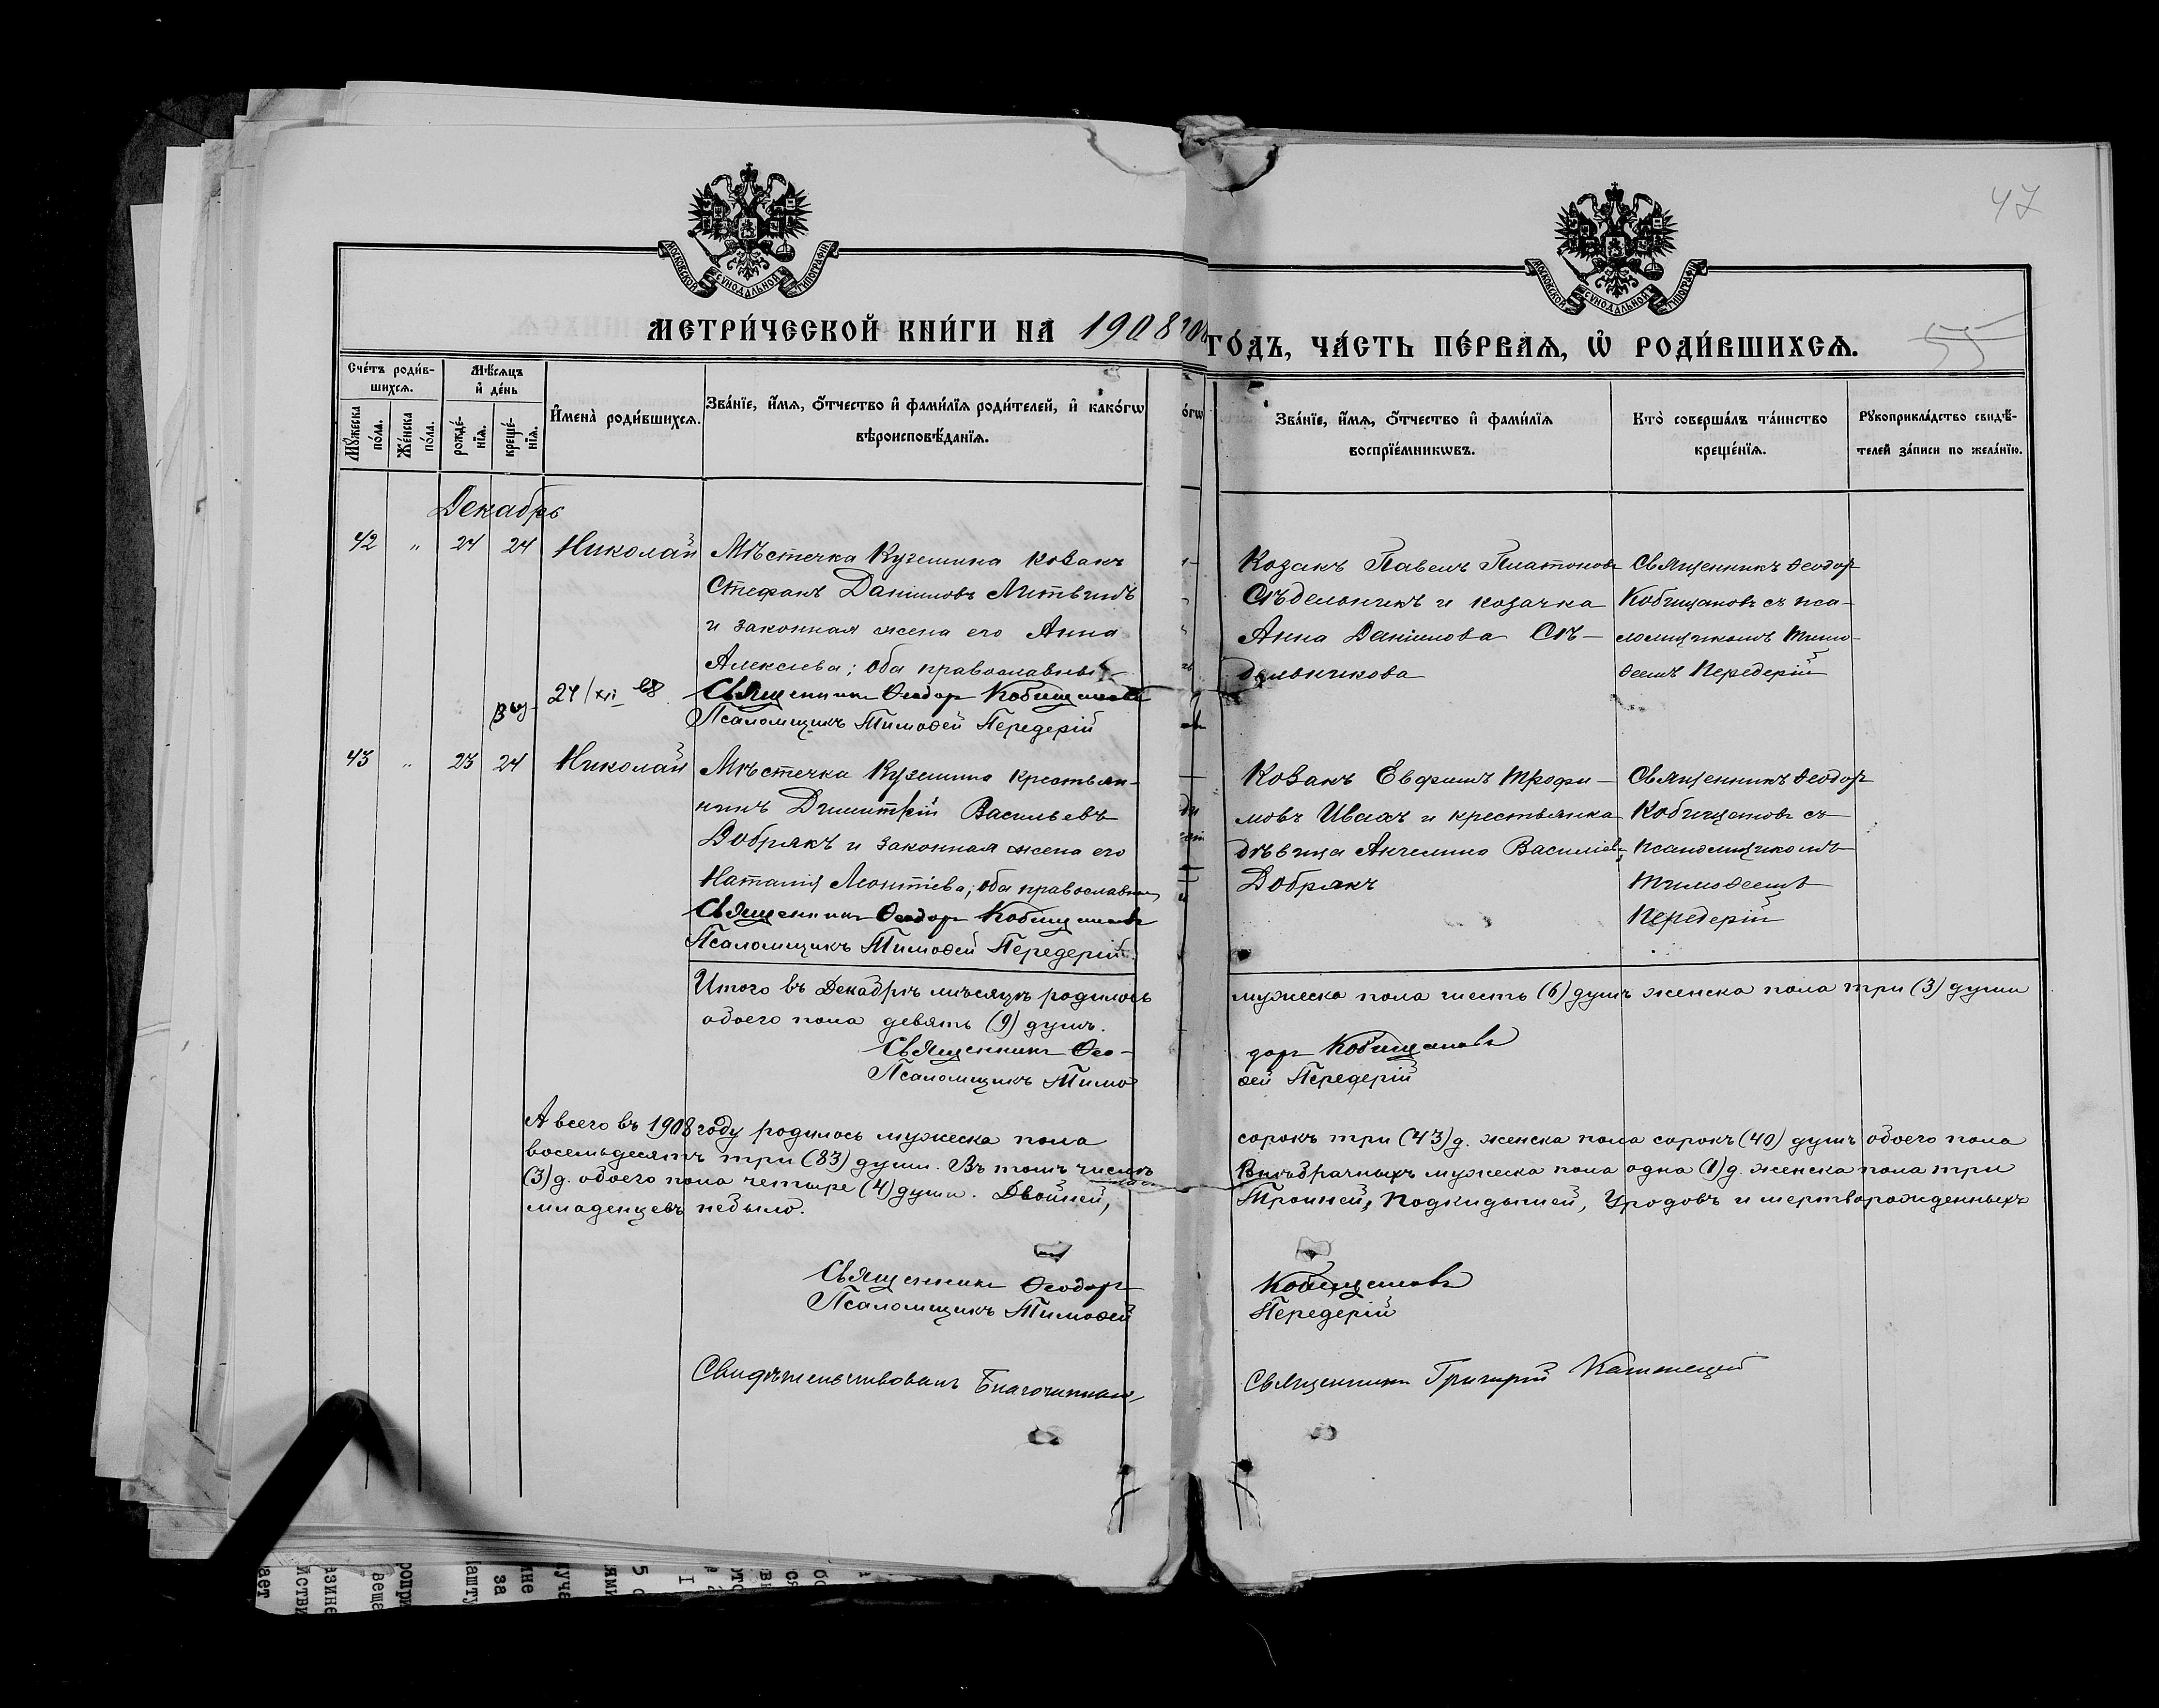 47
МОСКОВСКОЙ СѴНОДАЛЬНОЙ ТИПОГРАФІИ
МОСКОВСКОЙ СѴНОДАЛЬНОЙ ТИПОГРАФІИ
МЕТРИ́ЧЕСКОЙ КНИ́ГИ НА 1908 ГО́ДЪ, ЧА́СТЬ ПЕ́РВАѦ, Ѡ҆ РОДИ́ВШИХСѦ.
55
Сче́тъ роди́в-
шихсѧ.
Мѣ́сѧцъ
и҆ де́нь
Мꙋ́жеска
по́ла.
Же́нска
по́ла.
рожде́-
нїѧ.
креще́-
нїѧ.
И҆мена̀ роди́вшихсѧ.
Зва́нїе, и҆́мѧ, ѻ҆́тчество и҆ фами́лїѧ роди́телей, и҆ како́гѡ
вѣроисповѣ́данїѧ.
Зва́нїе, и҆́мѧ, ѻ҆́тчество и҆ фами́лїѧ
воспрїе́мникѡвъ.
Кто̀ соверша́лъ та́инство
креще́нїѧ.
Рꙋкоприкла́дство свидѣ́-
телей за́писи по жела́нїю.
Декабрь
42 " 24 24 Николай
Мѣстечка Куземина козакъ
Стефанъ Даніиловъ Литвинъ
и законная жена его Анна
Алексіева; оба православны
Священникъ Ѳеодоръ Кобищановъ
Псаломщикъ Тимоѳей Передерій
24/XII 68
Козакъ Павелъ Платоновъ
Сѣдельникъ и козачка
Анна Даніилова Сѣ-
дельникова
Священникъ Ѳеодоръ
Кобищановъ съ пса-
ломщикомъ Тимо-
ѳеемъ Передерій
43 " 23 24 Николай
Мѣстечка Куземина крестьян-
нинъ Димитрій Васильевъ
Добрякъ и законная жена его
Наталія Леонтіева; оба православны
Священникъ Ѳеодоръ Кобищановъ
Псаломщикъ Тимоѳей Передерій
Козакъ Евфимъ Трофи-
мовъ Ивахъ и крестьянка
дѣвица Ангелина Василіева
Добрякъ
Священникъ Ѳеодоръ
Кобищановъ съ
псаломщикомъ
Тимоѳеемъ
Передерій
Итого въ Декабрѣ мѣсяцѣ родилось мужеска пола шесть (6) душъ женска пола три (3) души
обоего пола девять (9) душъ.
Священникъ Ѳео- доръ Кобищановъ
Псаломщикъ Тимо ѳей Передерій
А всего въ 1908 году родилось мужеска пола сорокъ три (43) д. женска пола сорокъ (40) душъ обоего пола
восемьдесятъ три (83) души. Въ томъ числѣ Внѣбрачныхъ мужеска пола одна (1) д. женска пола три
(3) д. обоего пола четыре (4) души. Двойней, Тройней, Подкидышей, Уродовъ и мертворожденныхъ
младенцевъ небыло.
Священникъ Ѳеодоръ Кобищановъ
Псаломщикъ Тимоѳей Передерій
Свидѣтельствовалъ Благочинный, Священникъ Григорій